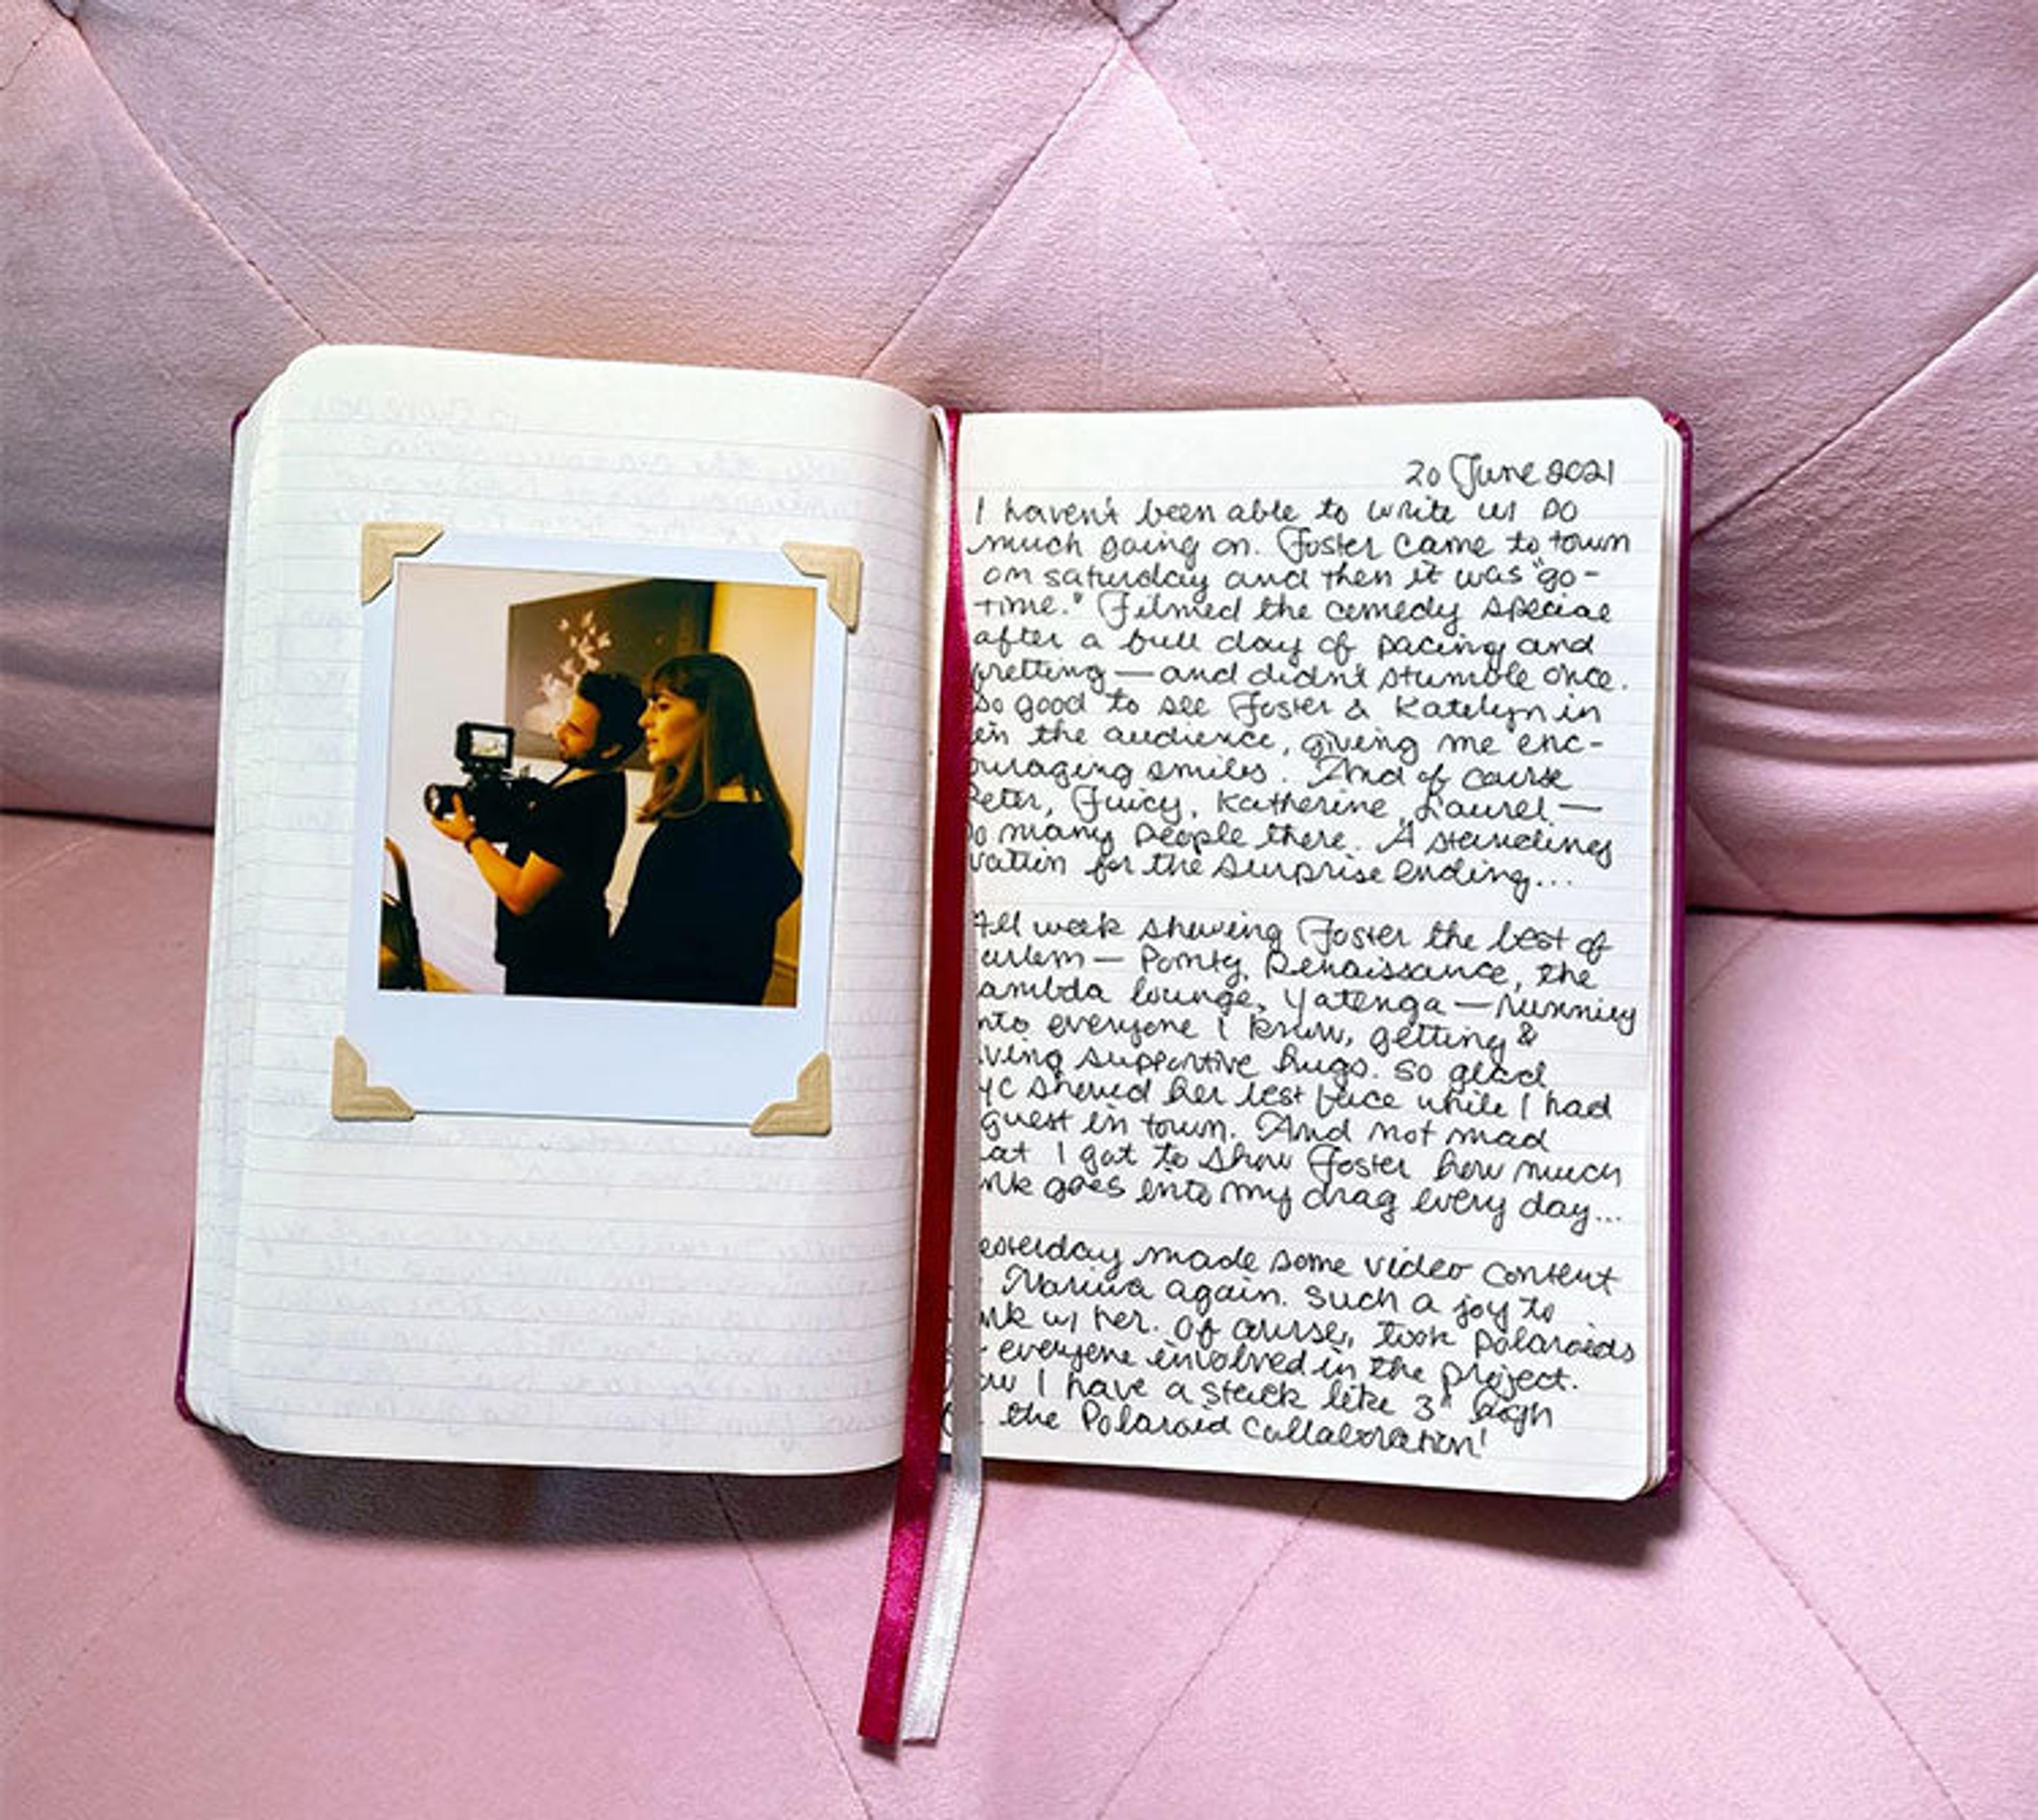 20 June 2021
I haven't been able to write w/ so
much going on. Foster came to town
on saturday and then it was "go-
time." Filmed the comedy special
after a full day of pacing and
fretting — and didn't stumble once.
So good to see Foster & Katelyn in
in the audience, giving me enc-
ouraging smiles. And of course
Peter, Juicy, Katherine, Laurel —
so many people there. A standing
vation for the surprise ending...
All week showing Foster the best of
arlem — Ponty, Renaissance, the
ambda lounge, Yatenga — running
nto everyone I know, getting &
iving supportive hugs. So glad
YC showed her best face while I had
guest in town. And not mad
at I got to show Foster how much
rk goes into my drag every day...
esterday made some video content
Marina again. Such a joy to
rk w/ her. Of course, took polaroids
everyone involved in the project.
ow I have a stack like 3" high
the Polaroid Collaboration!